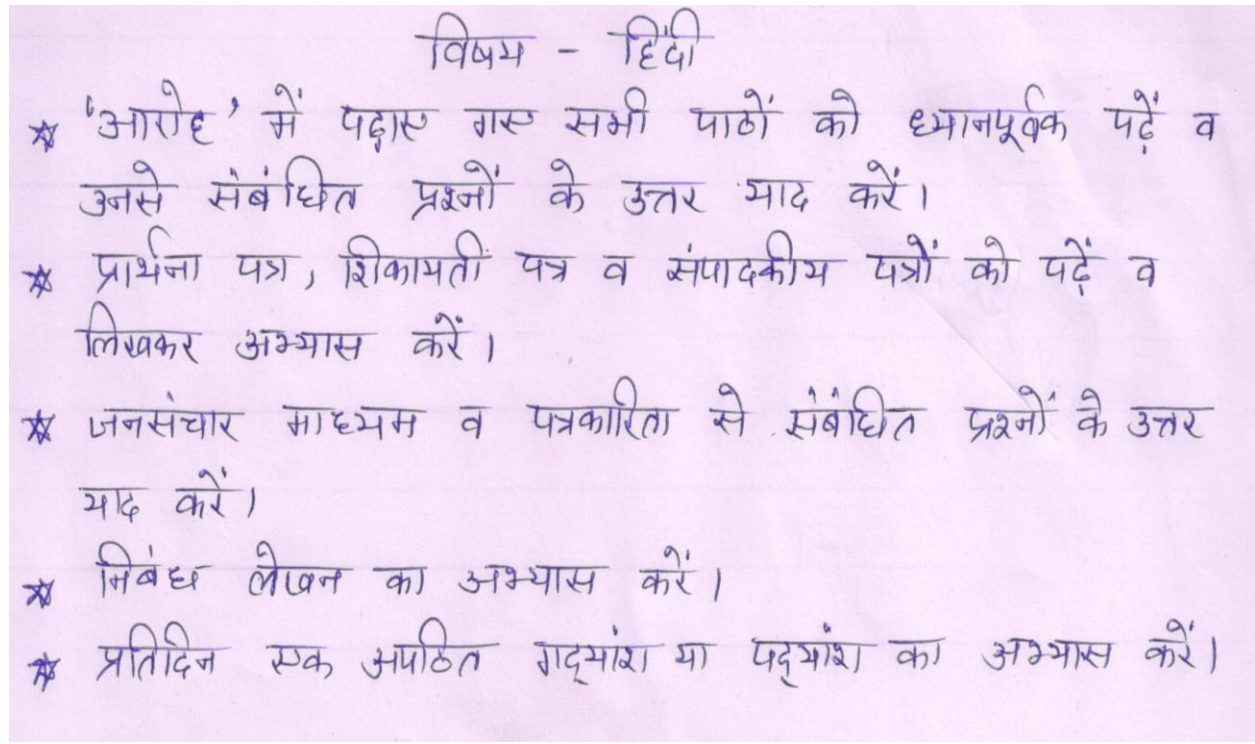 विषय - हिंदी
☆ 'आरोह' में पढ़ाए गए सभी पाठों को ध्यानपूर्वक पढ़ें व
उनसे संबंधित प्रश्नों के उत्तर याद करें।
☆ प्रार्थना पत्र, शिकायती पत्र व संपादकीय पत्रों को पढ़ें व
लिखकर अभ्यास करें।
☆ जनसंचार माध्यम व पत्रकारिता से संबंधित प्रश्नों के उत्तर
याद करें।
☆ निबंध लेखन का अभ्यास करें।
☆ प्रतिदिन एक अपठित गद्यांश या पद्यांश का अभ्यास करें।